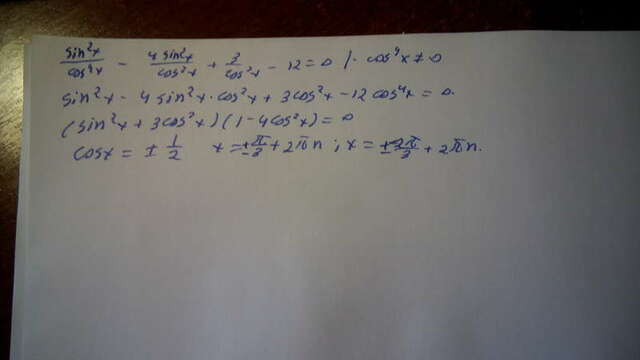 sin²x/cos⁴x - 4 sin²x/cos²x + 3/cos²x - 12 = 0 /· cos⁴x ≠ 0
sin²x - 4 sin²x · cos²x + 3cos²x - 12 cos⁴x = 0.
(sin²x + 3cos²x)(1 - 4cos²x) = 0
cosx = ± 1/2   x = ± π/3 + 2πn ; x = ± 2π/3 + 2πn.